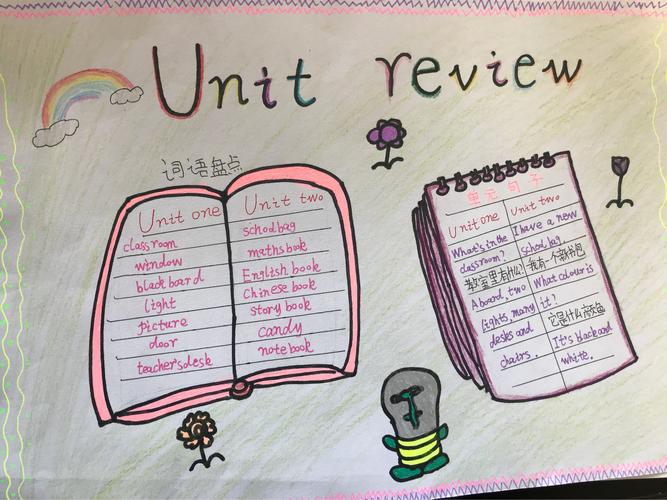 Unit review
词语盘点
Unit one
classroom
window
blackboard
light
picture
door
teacher's desk
Unit two
schoolbag
maths book
English book
Chinese book
story book
candy
notebook
单元句子
Unit one
What's in the
classroom?
教室里有什么?
A board, two
lights, many
desks and
chairs.
Unit two
I have a new
school bag
我有一个新书包
What colour is
it?
它是什么颜色
It's black and
white.